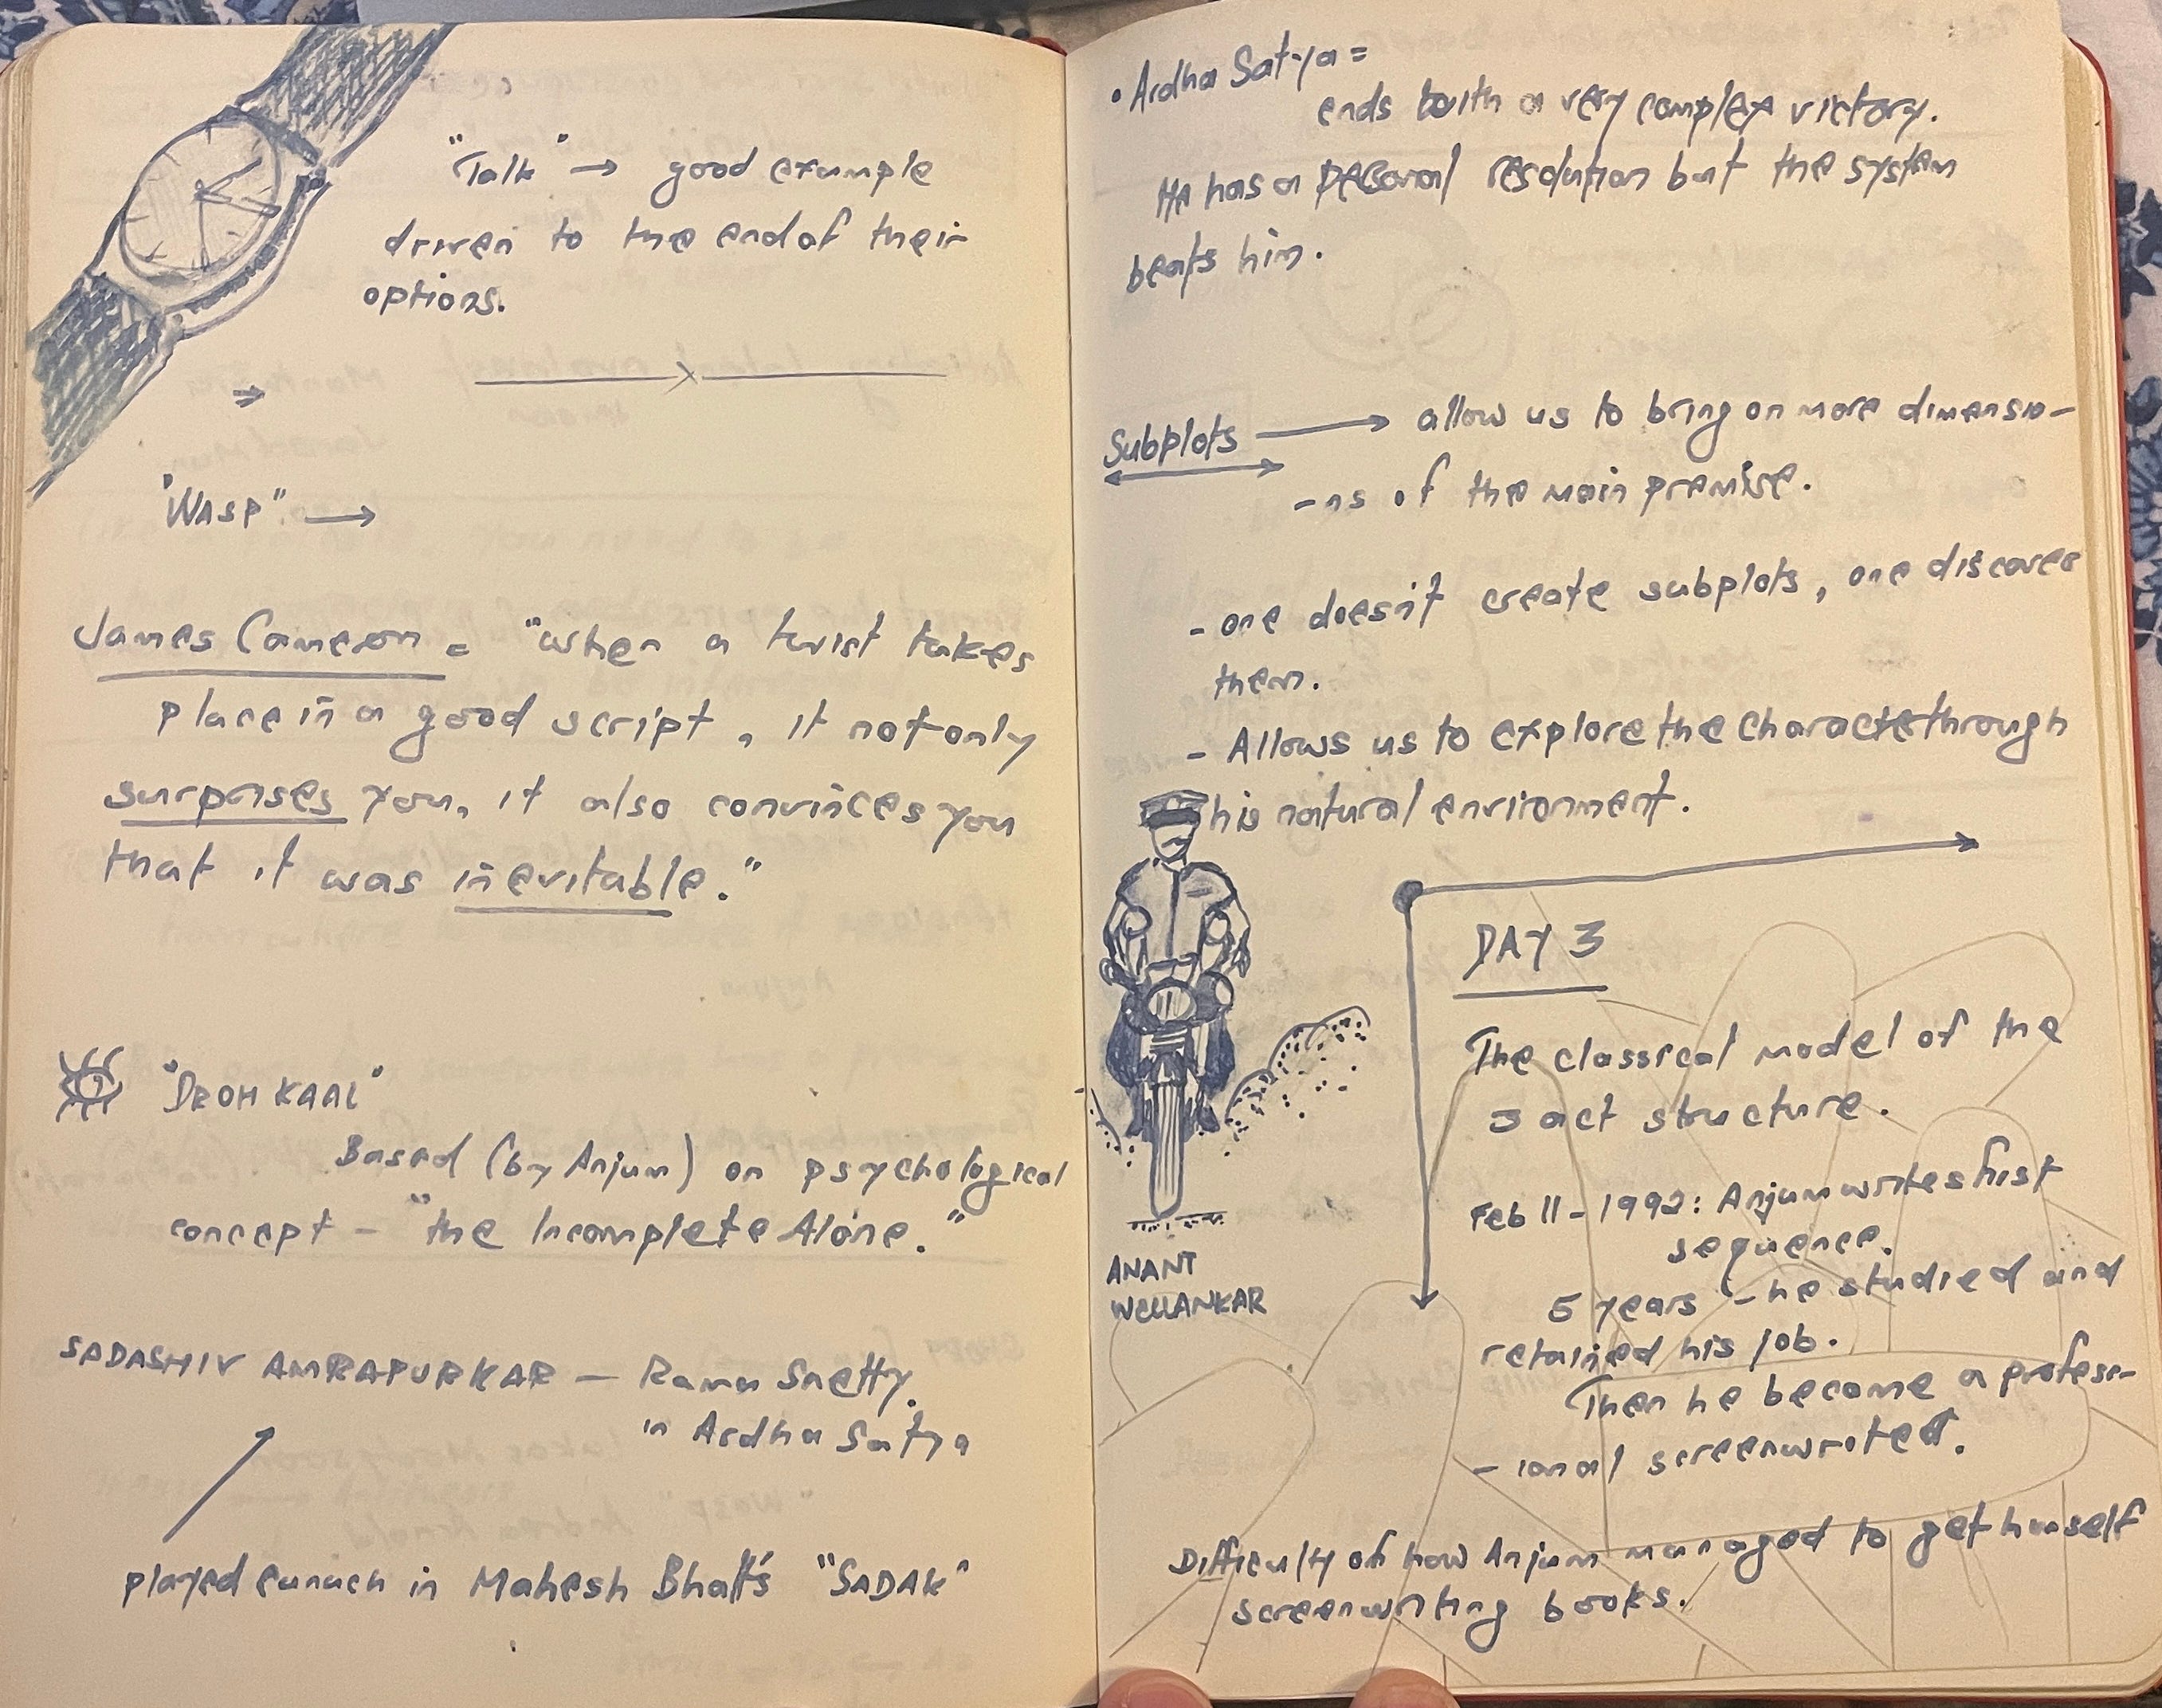 "Talk" → good example
driven to the end of their
options.
"WASP" →
James Cameron = "when a twist takes
place in a good script, it not only
surprises you, it also convinces you
that it was inevitable."
"DROHKAAL"
Based (by Anjum) on psychological
concept - "the Incomplete Alone."
SADASHIV AMRAPURKAR — Rama Shetty.
in Ardha Satya
played eunuch in Mahesh Bhatt's "SADAK"
• Ardha Satya =
ends with a very complex victory.
He has a personal resolution but the system
beats him.
Subplots → allow us to bring on more dimensio-
-ns of the main premise.
- one doesn't create subplots, one discovers
them.
- Allows us to explore the character through
his natural environment.
DAY 3
The classical model of the
3 act structure.
Feb 11 - 1992: Anjum writes first
sequence.
5 years - he studied and
retained his job.
Then he become a profess-
-ional screenwriter.
ANANT
WELLANKAR
Difficulty of how Anjum managed to get himself
screenwriting books.